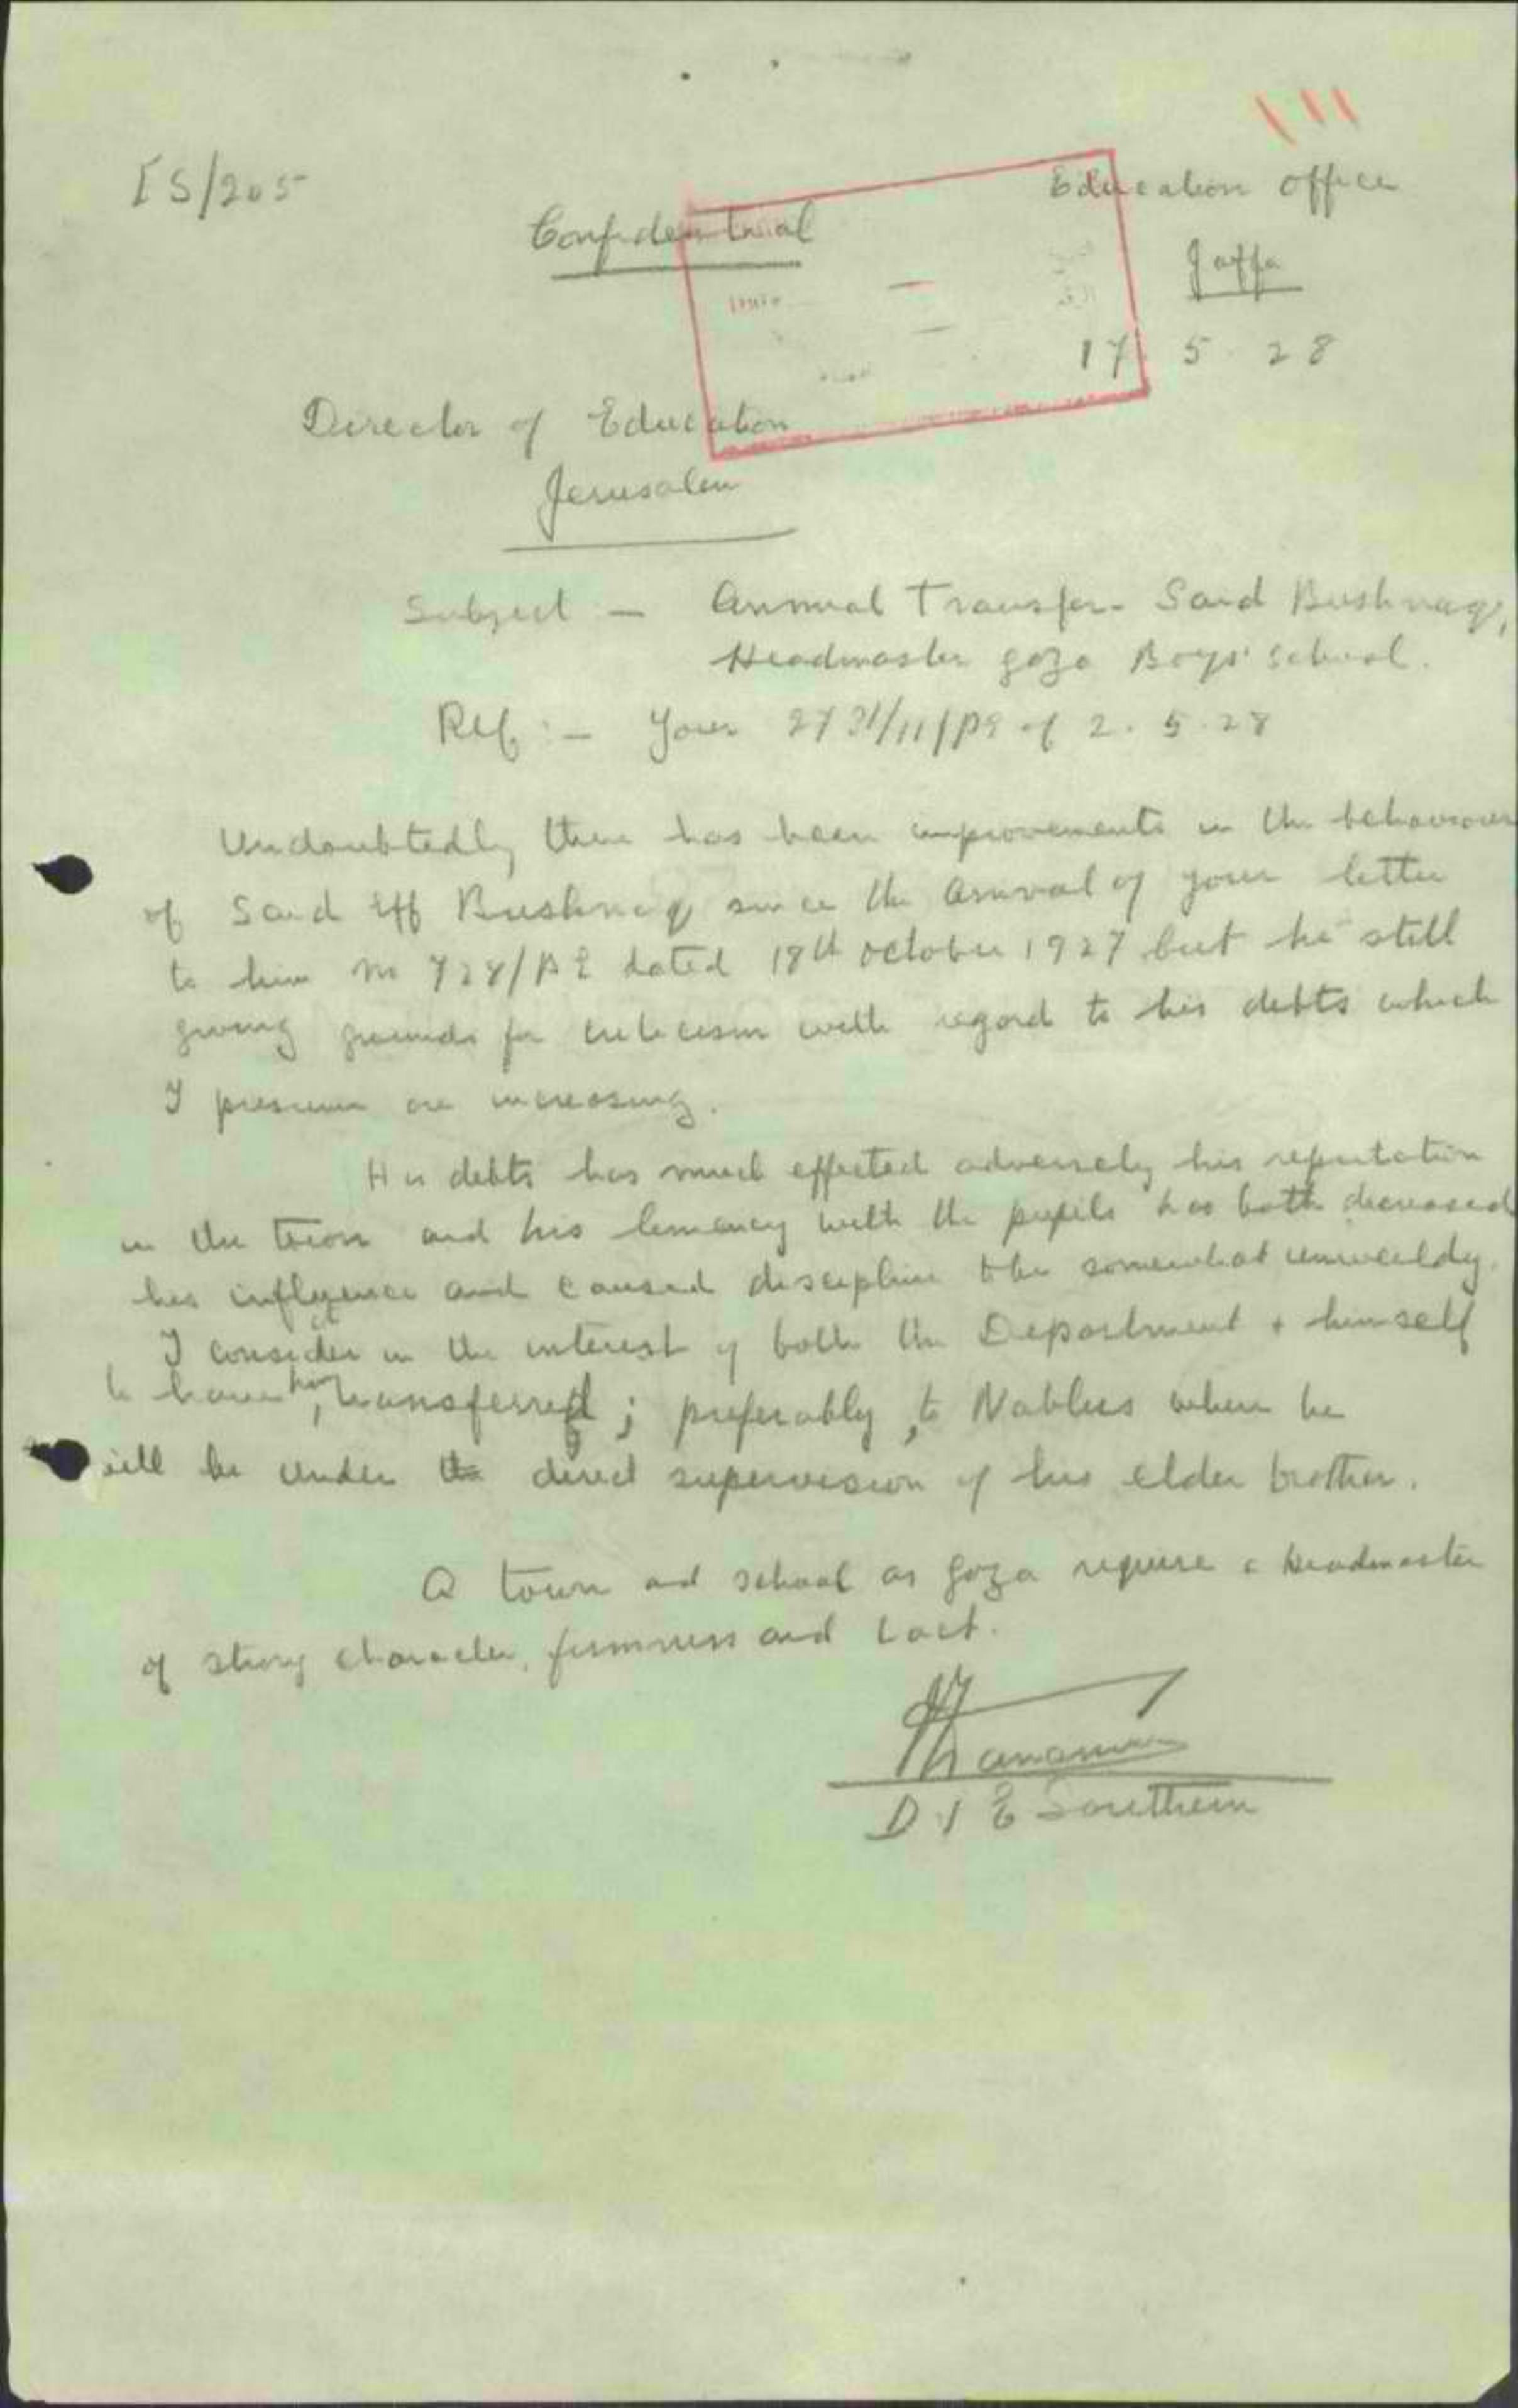 111
ES/205
Education office
Confidential
Jaffa
17. 5. 28
Director of Education
Jerusalem
Subject - Annual Transfer - Said Bushnaq,
Headmaster Gaza Boys' School.
Ref:- Your of 2. 5. 28
Undoubtedly there has been improvements in the behaviour
of Said Eff Bushnaq since the arrival of your letter
to him No dated 18th October 1927 but he still
giving grounds for criticism with regard to his debts which
I presume are increasing.
His debts has much effected adversely his reputation
in the town and his lemency with the pupils has both decreased
his influence and caused discipline to be somewhat unwieldy.
I consider in the interest of both the Department + himself
to have him transferred; preferably, to Nablus where he
will be under the direct supervision of his elder brother.
A town and school as Gaza require a Headmaster
of strong character, firmness and tact.
D.I.E Southern